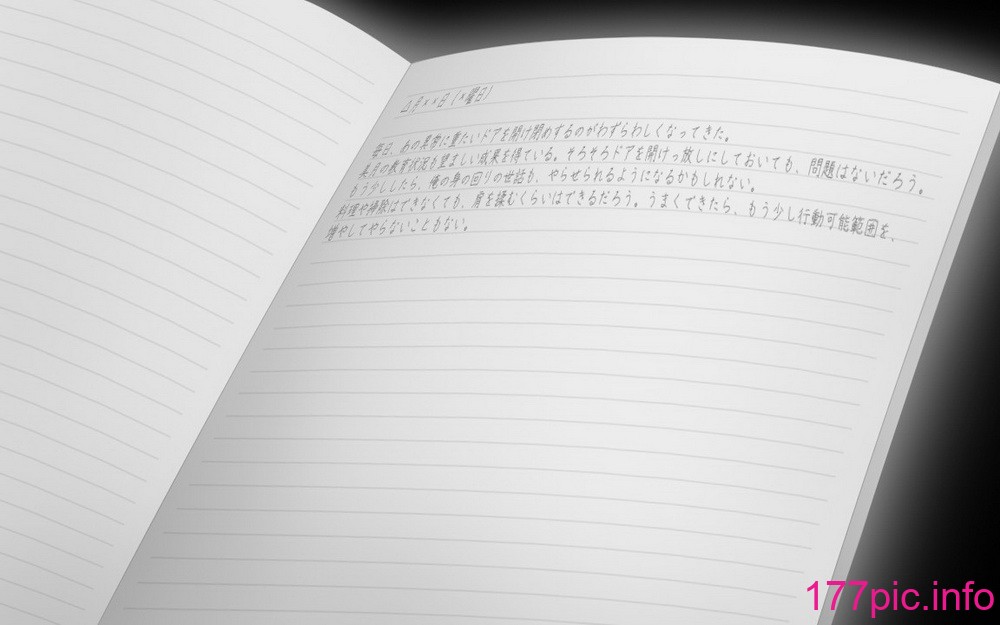 △月××日（×曜日）
毎日、あの異常に重たいドアを開け閉めするのがわずらわしくなってきた。
美月の教育状況も望ましい成果を得ている。そろそろドアを開けっ放しにしておいても、問題はないだろう。
もう少ししたら、俺の身の回りの世話も、やらせられるようになるかもしれない。
料理や掃除はできなくても、肩を揉むくらいはできるだろう。うまくできたら、もう少し行動可能範囲を、
増やしてやらないこともない。
177pic.info